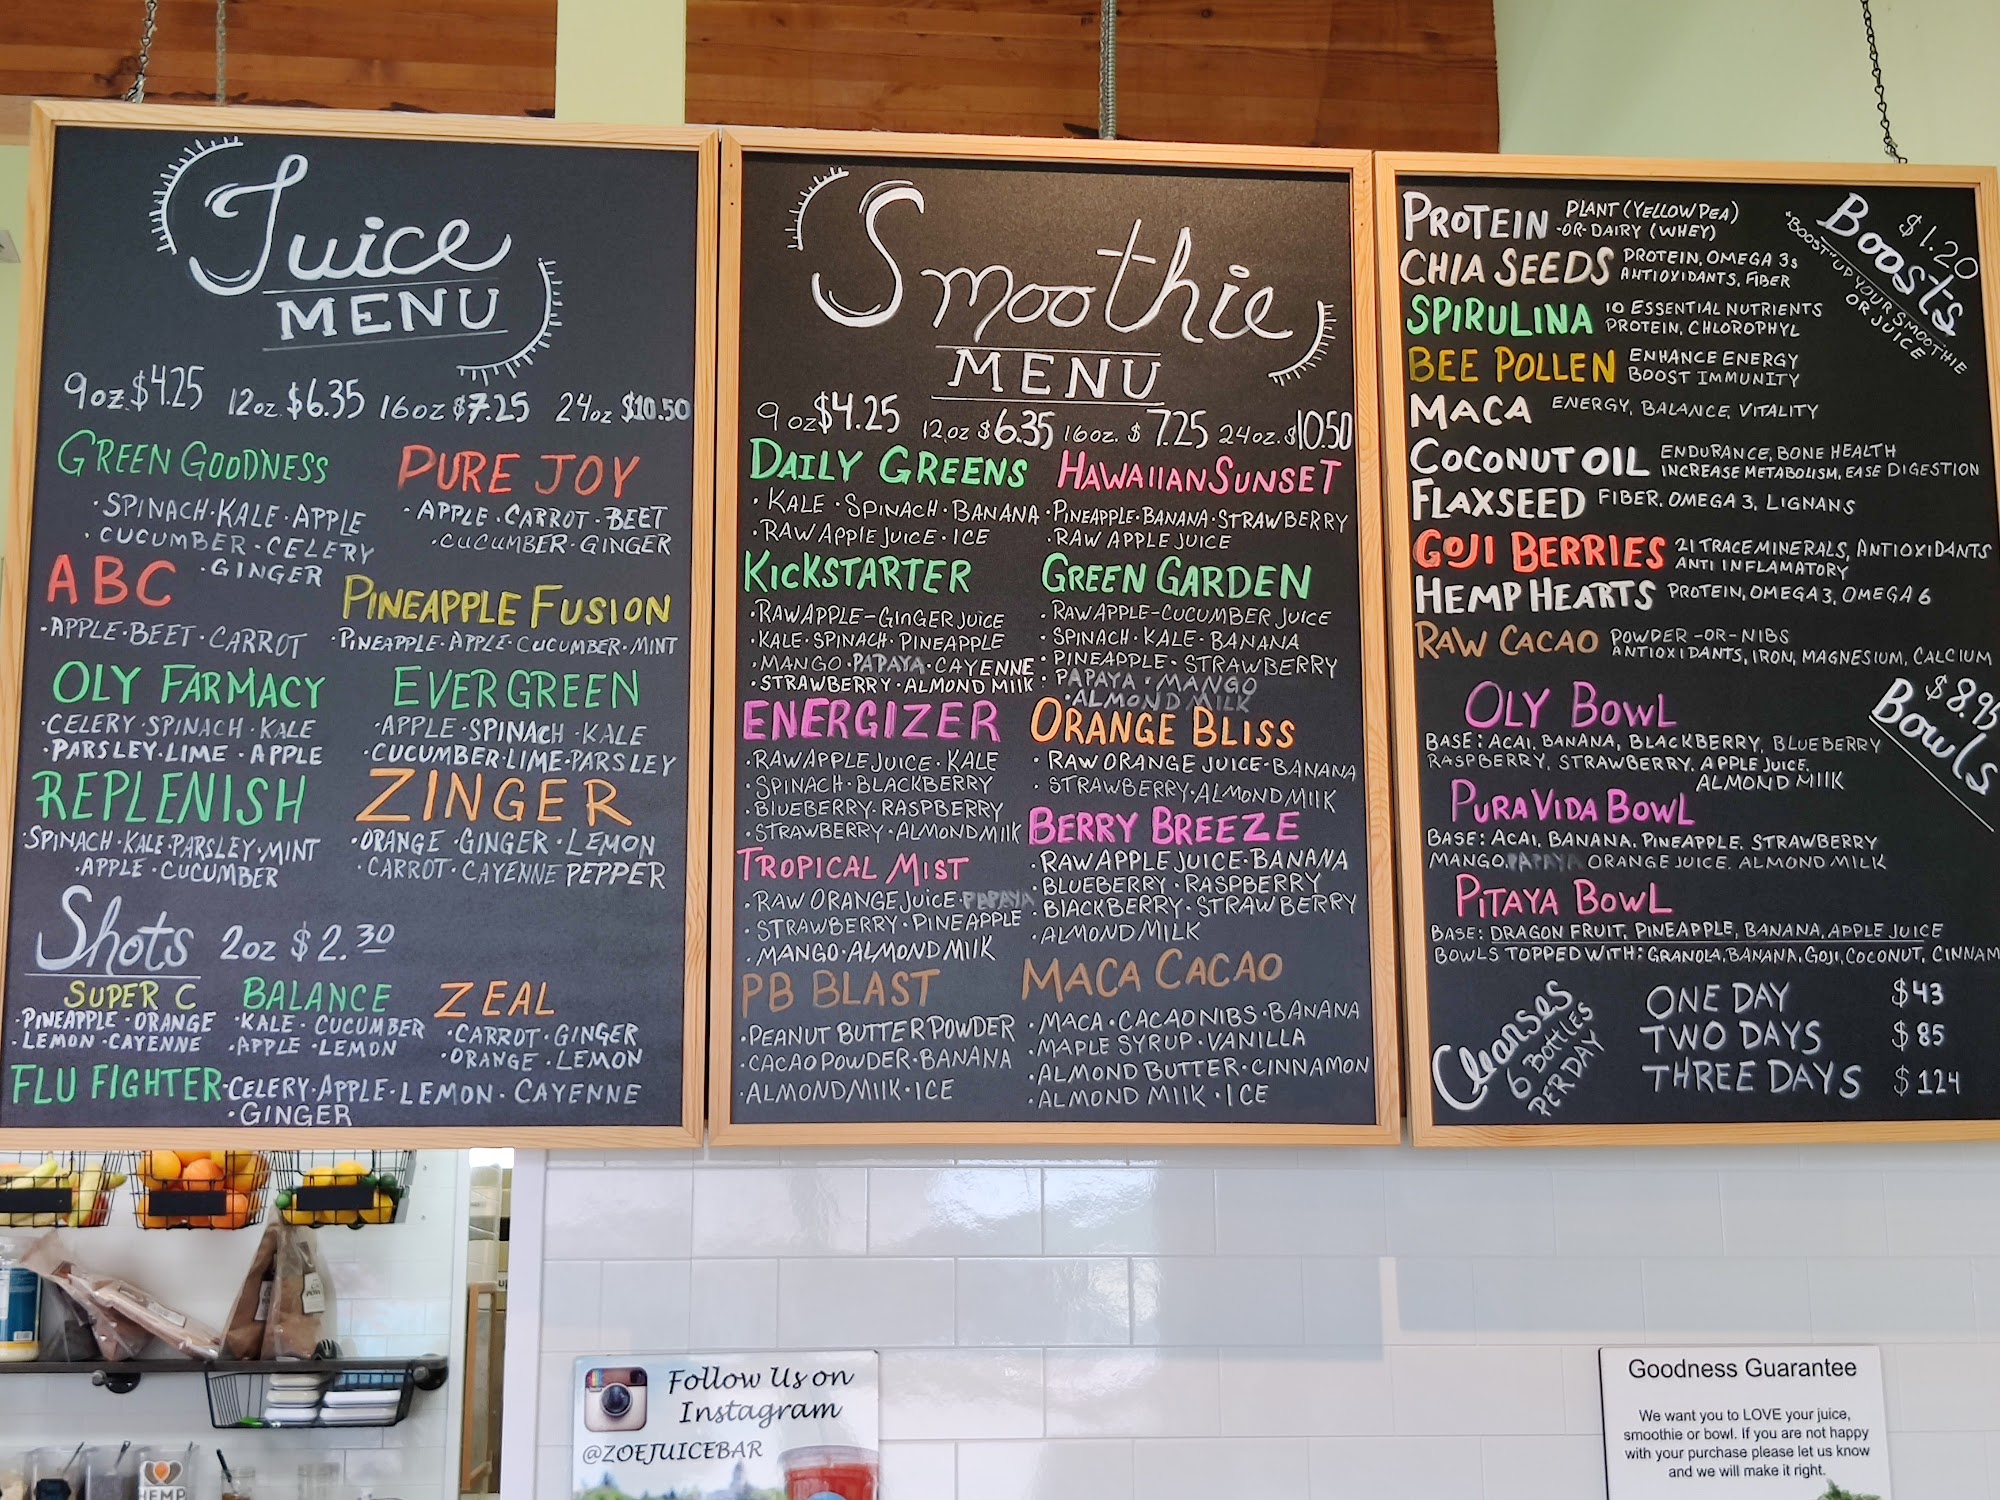 Juice
MENU
9oz. $4.25 12oz. $6.35 16oz $7.25 24oz $10.50
GREEN GOODNESS
· SPINACH · KALE · APPLE
· CUCUMBER · CELERY
· GINGER
PURE JOY
· APPLE · CARROT · BEET
· CUCUMBER · GINGER
ABC
· APPLE · BEET · CARROT
PINEAPPLE FUSION
· PINEAPPLE · APPLE · CUCUMBER · MINT
OLY FARMACY
· CELERY · SPINACH · KALE
· PARSLEY · LIME · APPLE
EVERGREEN
· APPLE · SPINACH · KALE
· CUCUMBER · LIME · PARSLEY
REPLENISH
· SPINACH · KALE · PARSLEY · MINT
· APPLE · CUCUMBER
ZINGER
· ORANGE · GINGER · LEMON
· CARROT · CAYENNE PEPPER
Shots 2oz $2.30
SUPER C
· PINEAPPLE · ORANGE
· LEMON · CAYENNE
BALANCE
· KALE · CUCUMBER
· APPLE · LEMON
ZEAL
· CARROT · GINGER
· ORANGE · LEMON
FLU FIGHTER · CELERY · APPLE · LEMON · CAYENNE
· GINGER
Smoothie
MENU
9 oz $4.25 12oz $6.35 16oz. $7.25 24oz. $10.50
DAILY GREENS
· KALE · SPINACH · BANANA
· RAW APPLE JUICE · ICE
HAWAIIAN SUNSET
· PINEAPPLE · BANANA · STRAWBERRY
· RAW APPLE JUICE
KICKSTARTER
· RAW APPLE-GINGER JUICE
· KALE · SPINACH · PINEAPPLE
· MANGO · PAPAYA · CAYENNE
· STRAWBERRY · ALMOND MILK
GREEN GARDEN
· RAW APPLE-CUCUMBER JUICE
· SPINACH · KALE · BANANA
· PINEAPPLE · STRAWBERRY
· PAPAYA · MANGO
· ALMOND MILK
ENERGIZER
· RAW APPLE JUICE · KALE
· SPINACH · BLACKBERRY
· BLUEBERRY · RASPBERRY
· STRAWBERRY · ALMOND MILK
ORANGE BLISS
· RAW ORANGE JUICE · BANANA
· STRAWBERRY · ALMOND MILK
TROPICAL MIST
· RAW ORANGE JUICE · PAPAYA
· STRAWBERRY · PINEAPPLE
· MANGO · ALMOND MILK
BERRY BREEZE
· RAW APPLE JUICE · BANANA
· BLUEBERRY · RASPBERRY
· BLACKBERRY · STRAWBERRY
· ALMOND MILK
PB BLAST
· PEANUT BUTTER POWDER
· CACAO POWDER · BANANA
· ALMOND MILK · ICE
MACA CACAO
· MACA · CACAO NIBS · BANANA
· MAPLE SYRUP · VANILLA
· ALMOND BUTTER · CINNAMON
· ALMOND MILK · ICE
Boosts $1.20
"BOOST" UP YOUR SMOOTHIE
OR JUICE
PROTEIN PLANT (YELLOW PEA)
-OR- DAIRY (WHEY)
CHIA SEEDS PROTEIN, OMEGA 3s
ANTIOXIDANTS, FIBER
SPIRULINA 10 ESSENTIAL NUTRIENTS
PROTEIN, CHLOROPHYL
BEE POLLEN ENHANCE ENERGY
BOOST IMMUNITY
MACA ENERGY, BALANCE, VITALITY
COCONUT OIL ENDURANCE, BONE HEALTH
INCREASE METABOLISM, EASE DIGESTION
FLAXSEED FIBER, OMEGA 3, LIGNANS
GOJI BERRIES 21 TRACE MINERALS, ANTIOXIDANTS
ANTI INFLAMATORY
HEMP HEARTS PROTEIN, OMEGA 3, OMEGA 6
RAW CACAO POWDER -OR- NIBS
ANTIOXIDANTS, IRON, MAGNESIUM, CALCIUM
Bowls $8.95
OLY BOWL
BASE: ACAI, BANANA, BLACKBERRY, BLUEBERRY
RASPBERRY, STRAWBERRY, APPLE JUICE,
ALMOND MILK
PURA VIDA BOWL
BASE: ACAI, BANANA, PINEAPPLE, STRAWBERRY
MANGO, PAPAYA ORANGE JUICE, ALMOND MILK
PITAYA BOWL
BASE: DRAGON FRUIT, PINEAPPLE, BANANA, APPLE JUICE
BOWLS TOPPED WITH: GRANOLA, BANANA, GOJI, COCONUT, CINNAM
Cleanses
6 BOTTLES
PER DAY
ONE DAY $43
TWO DAYS $85
THREE DAYS $124
Follow Us on
Instagram
@ZOEJUICEBAR
Goodness Guarantee
We want you to LOVE your juice,
smoothie or bowl. If you are not happy
with your purchase please let us know
and we will make it right.
HEMP